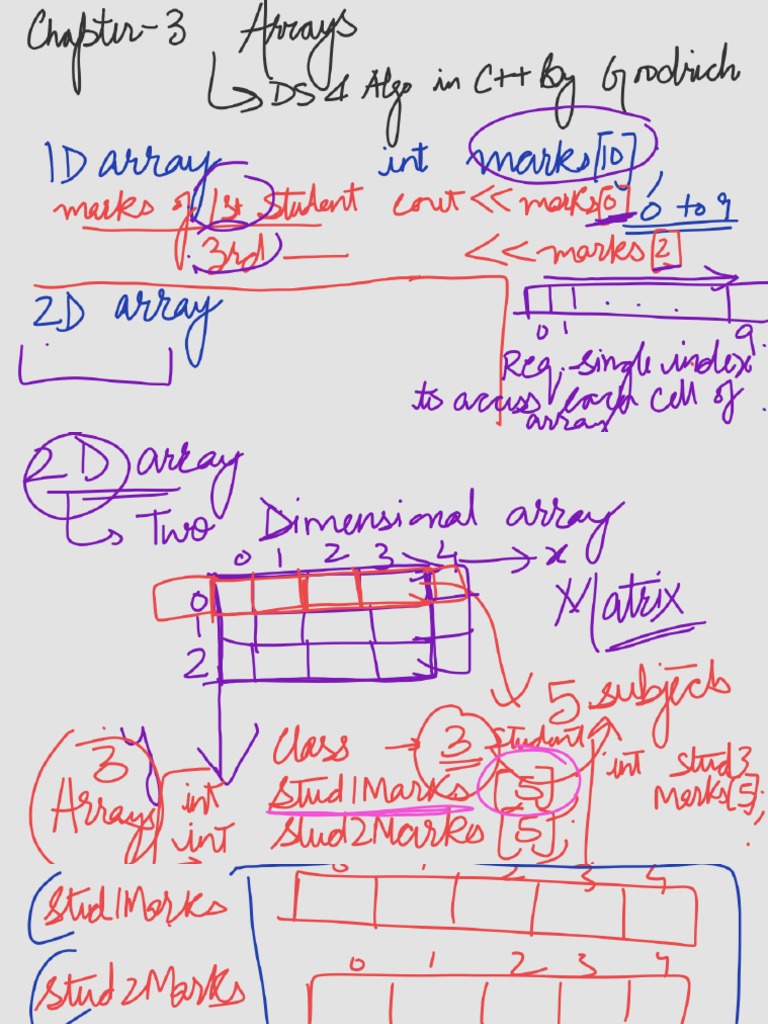 Chapter-3 Arrays
↳ DS & Algo in C++ By Goodrich
1D array int marks[10]
marks of 1st student cout << marks[0] 0 to 9
3rd — << marks[2]
2D array
0 1 9
Req. single index
to access each cell of
array
2D array
↳ Two Dimensional array
0 1 2 3 4 → x
0
1
2
Matrix
5 subjects
y
3 Arrays
Class → 3 students
int stud1Marks [5];
int stud2Marks [5];
int stud3
Marks[5];
0 1 2 3 4
stud1Marks
0 1 2 3 4
stud2Marks